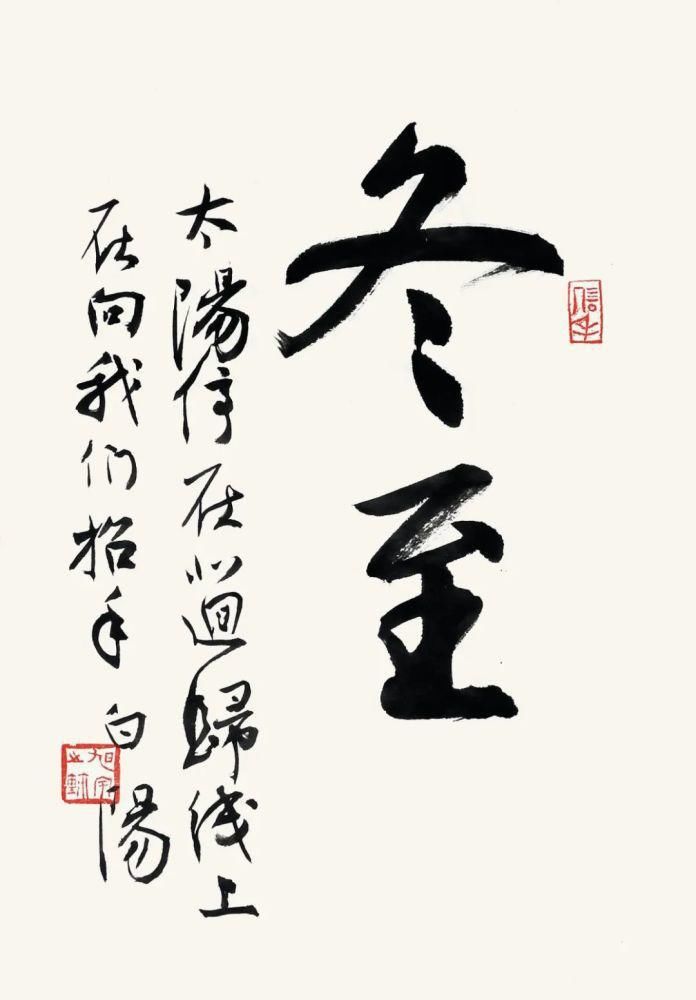 冬至
太陽停在北迴歸线上
在向我们招手 白陽